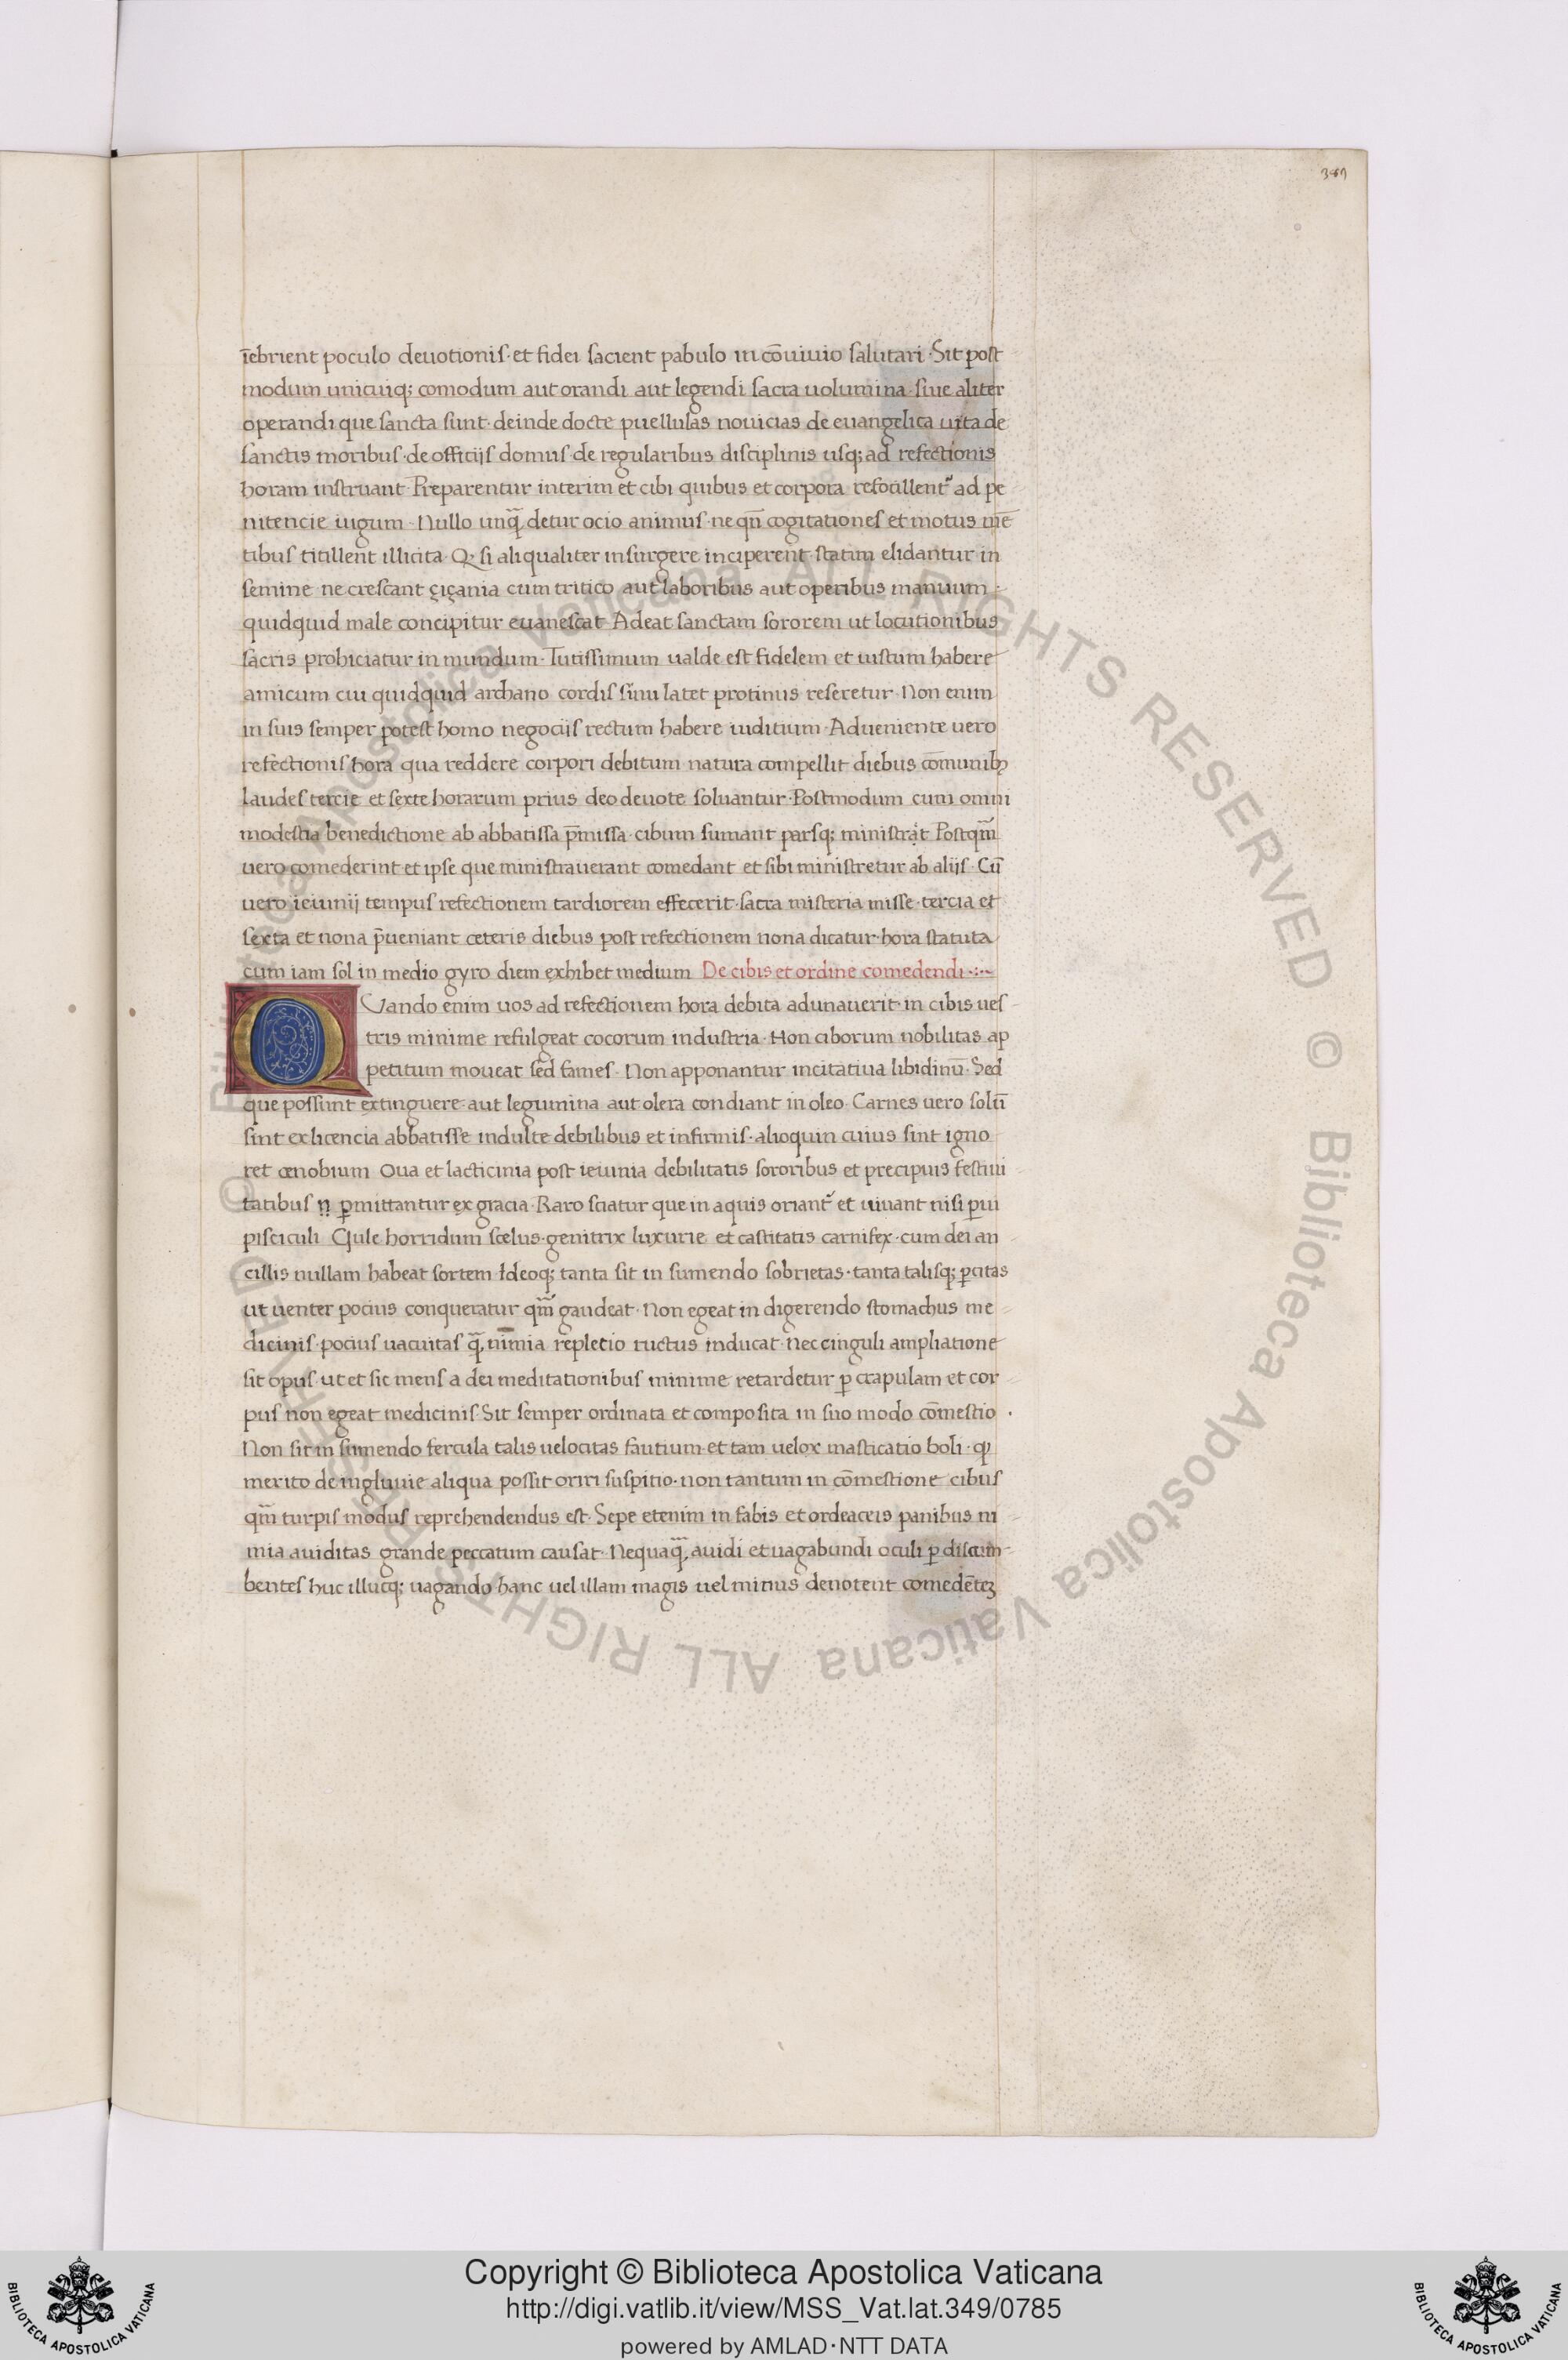 389
īebrient poculo deuotionis· et fidei sacient pabulo in cōuiuio salutari· Sit post
modum unicuiq; comodum aut orandi aut legendi sacra uolumina· siue aliter
operandi que sancta sunt· deinde docte puellulas nouicias de euangelica uita de
sanctis moribus· de officijs domus· de regularibus disciplinis usq; ad refectionis
horam instruant· Preparentur interim et cibi quibus et corpora refocillent᷑ ad pe
nitencie iugum· Nullo unq̄ detur ocio animus· ne qn̄ cogitationes et motus mē
tibus titillent illicita· Q si aliqualiter insurgere inciperent· statim elidantur in
semine· ne crescant çiçania cum tritico aut laboribus aut operibus manuum·
quidquid male concipitur euanescat· Adeat sanctam sororem ut locutionibus
sacris prohiciatur in mundum· Tutissimum ualde est fidelem et iustum habere
amicum cui quidquid archano cordis sinu latet protinus reseretur· Non enim
in suis semper potest homo negociis rectum habere iuditium· Adueniente uero
refectionis hora qua reddere corpori debitum natura compellit diebus cōmunibꝫ
laudes tercie et sexte horarum prius deo deuote soluantur· Postmodum cum omni
modestia benedictione ab abbatissa p̄missa· cibum sumant parsq; ministrat Postqm̄
uero comederint et ipse que ministrauerant comedant et sibi ministretur ab alijs· Cū
uero ieiunij tempus refectionem tardiorem effecerit· sacra misteria misse· tercia et
sexta et nona p̄ueniant ceteris diebus post refectionem nona dicatur· hora statuta
cum iam sol in medio gyro diem exhibet medium De cibis et ordine comedendi·:·~
QVando enim uos ad refectionem hora debita adunauerit· in cibis ues
tris minime refulgeat cocorum industria· Non ciborum nobilitas ap
petitum moueat sed fames· Non apponantur incitatiua libidinū· Sed
que possunt extinguere· aut legumina aut olera condiant in oleo· Carnes uero solū
sint ex licencia abbatisse indulte debilibus et infirmis· alioquin cuius sint igno
ret cenobium Oua et lacticinia post ieiunia debilitatis sororibus et precipuis festiui
tatibus n̄ ꝑmittantur ex gracia· Raro sciatur que in aquis oriant᷑ et uiuant nisi ꝑui
pisciculi Gule horridum scelus· genitrix luxurie et castitatis carnifex· cum dei an
cillis nullam habeat sortem· Ideoq; tanta sit in sumendo sobrietas· tanta talisq; ꝑcitas
ut uenter pocius conqueratur qm̄ gaudeat· Non egeat in digerendo stomachus me
dicinis· pocius uacuitas q̄ nimia repletio ructus inducat· nec cinguli ampliatione
sit opus· ut et sic mens a dei meditationibus minime retardetur ꝑ crapulam et cor
pus non egeat medicinis· Sit semper ordinata et composita in suo modo cōmestio·
Non sit in sumendo fercula talis uelocitas fautium· et tam uelox masticatio boli· ꝙ
merito de ingluuie aliqua possit oriri suspitio· non tantum in cōmestione cibus
qm̄ turpis modus reprehendendus est· Sepe etenim in fabis et ordeaceis panibus ni
mia auiditas grande peccatum causat· Nequaq̄ auidi et uagabundi oculi ꝑ discum
bentes huc illucq; uagando hanc uel illam magis uel minus denotent comedētꝫ
© Biblioteca Apostolica Vaticana ALL RIGHTS RESERVED © Biblioteca Apostolica Vaticana ALL RIGHTS RESERVED
Copyright © Biblioteca Apostolica Vaticana
http://digi.vatlib.it/view/MSS_Vat.lat.349/0785
powered by AMLAD·NTT DATA
BIBLIOTECA APOSTOLICA VATICANA
BIBLIOTECA APOSTOLICA VATICANA